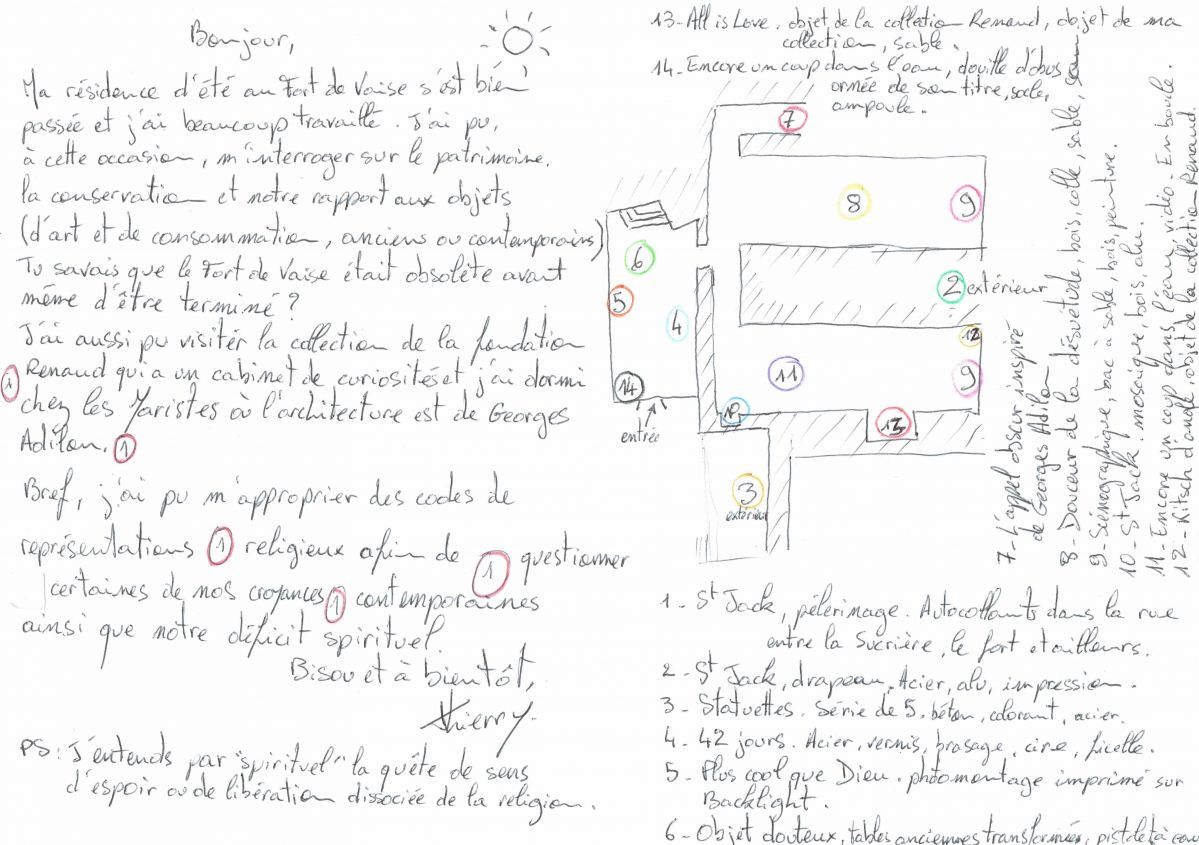 Bonjour,
Ma résidence d'été au Fort de Vaise s'est bien
passée et j'ai beaucoup travaillé. J'ai pu,
à cette occasion, m'interroger sur le patrimoine,
la conservation et notre rapport aux objets
(d'art et de consommation, anciens ou contemporains)
Tu savais que le Fort de Vaise était obsolète avant
même d'être terminé ?
J'ai aussi pu visiter la collection de la fondation
1 Renaud qui a un cabinet de curiosités et j'ai dormi
chez les Maristes où l'architecture est de Georges
Adilon. 1
Bref, j'ai pu m'approprier des codes de
représentations 1 religieux afin de 1 questionner
certaines de nos croyances 1 contemporaines
ainsi que notre déficit spirituel.
Bisou et à bientôt,
Thierry.
PS : J'entends par "spirituel" la quête de sens
d'espoir ou de libération dissociée de la religion.
13 - All is Love. objet de la collection Renaud, objet de ma
collection, sable.
14 - Encore un coup dans l'eau, douille d'obus
ornée de son titre, socle,
ampoule.
7
8
9
6
5
4
2 extérieur
12
11
9
14
10
13
entrée
3
extérieur
7 - L'appel obscur inspiré
de Georges Adilon
8 - Douceur de la désuétude, bois, colle, sable, son
9 - Scénographique, bac à sable, bois, peinture.
10 - St Jack. mosaïque, bois, alu.
11 - Encore un coup dans l'eau, vidéo. En boucle.
12 - Kitsch d'andé, objet de la collection Renaud.
1 - St Jack, pélerinage. Autocollants dans la rue
entre la Sucrière, le fort et ailleurs.
2 - St Jack, drapeau. Acier, alu, impression.
3 - Statuettes. Série de 5. béton, colorant, acier.
4 - 42 jours. Acier, vernis, brasage, cire, ficelle.
5 - Plus cool que Dieu. photomontage imprimé sur
Backlight.
6 - Objet douteux, tables anciennes transformées, pistolet à